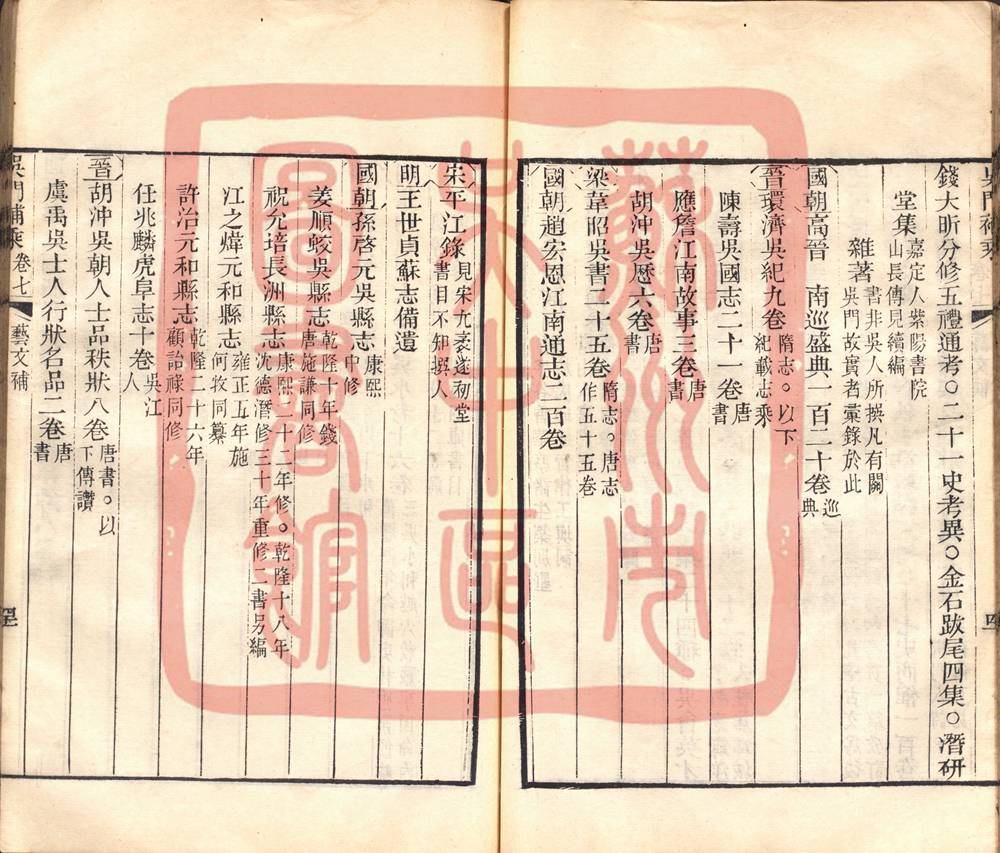 錢大昕分修五禮通考○二十一史考異○金石跋尾四集○潛研
堂集嘉定人紫陽書院山長傳見續編
雜著書非吳人所撰凡有關吳門故實者彙錄於此
國朝高晉 南巡盛典一百二十卷巡典
晉環濟吳紀九卷隋志。以下紀載志乘
陳壽吳國志二十一卷唐書
應詹江南故事三卷唐書
胡沖吳歷六卷唐書
梁韋昭吳書二十五卷隋志。唐志作五十五卷
國朝趙宏恩江南通志二百卷
宋平江錄見宋尤袤遂初堂書目不知撰人
明王世貞蘇志備遺
國朝孫啓元吳縣志康熙中修
姜順蛟吳縣志乾隆十年錢唐施謙同修
祝允培長洲縣志康熙二十二年修。乾隆十八年沈德潛修三十年重修二書另編
江之煒元和縣志雍正五年施何牧同纂
許治元和縣志乾隆二十六年顧詒祿同修
任兆麟虎阜志十卷吳江人
晉胡沖吳朝人士品秩狀八卷唐書。以下傳讚
虞禹吳士人行狀名品二卷唐書
吳門補乘 卷七 藝文補
蘇州市文史館圖書館